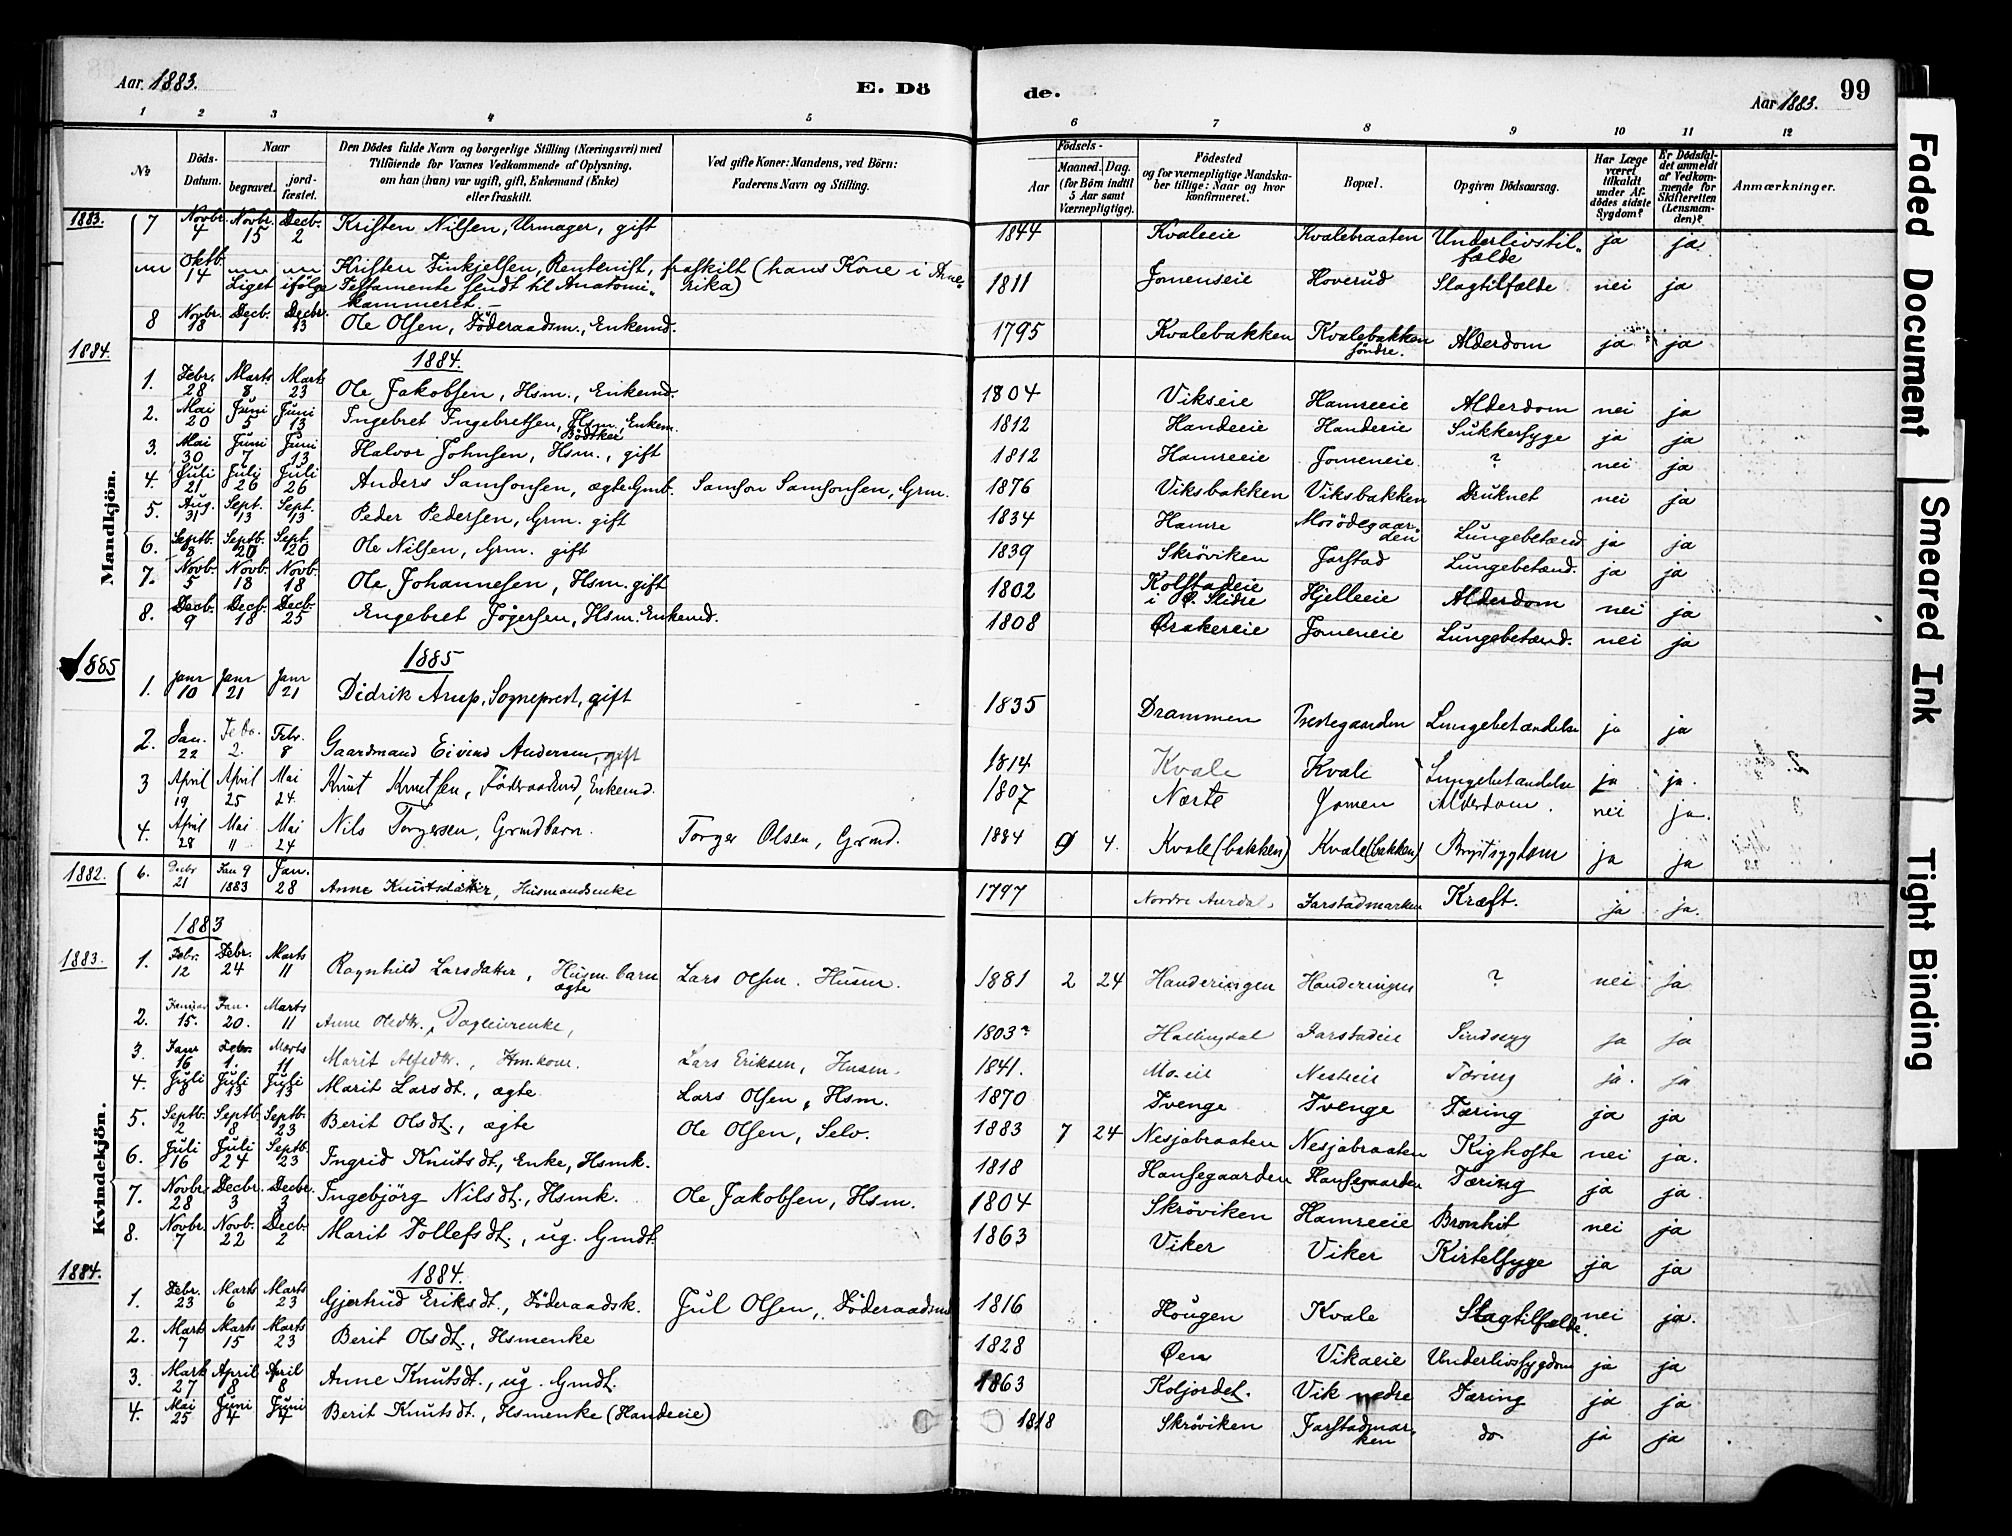 Aar 1883. E. Dö de. Aar 1883. 99
1 2 3 4 5 6 7 8 9 10 11 12
No Döds-Datum. Naar begravet. jordfæstet. Den Dödes fulde Navn og borgerlige Stilling (Næringsvei) med Tilföiende for Voxnes Vedkommende af Oplysning, om han (hun) var ugift, gift, Enkemand (Enke) eller fraskilt. Ved gifte Koner: Mandens, ved Börn: Faderens Navn og Stilling. Födsels- Aar Maaned. Dag. (for Börn indtil 5 Aar samt Værnepligtige). Födested og for værnepligtige Mandskaber tillige: Naar og hvor konfirmeret. Bopæl. Opgiven Dödsaarsag. Har Læge været tilkaldt under Afdödes sidste Sygdom? Er Dödsfaldet anmeldt af Vedkommende for Skifteretten (Lensmanden)? Anmærkninger.
Mandkjön.
1883. 7 Novbr. 4 Novbr. 15 Decb. 2 Kristen Nilsen, Urmager, gift 1844 Kvaleeie Kvalebraaten Underlivstilfælde ja ja
Oktb. 14 Kristen Finkjelsen, Rentenist, fraskilt (hans Kone i Amerika) 1811 Jomenseie Hoverud Slagtilfælde nei ja
Liget ifölge Testamente sendt til Anatomikammeret.
8 Novbr. 18 Decb. 1 Decbr. 13 Ole Olsen, Föderaadsm., Enkemd. 1795 Kvalebakken Kvalebakken söndre. Alderdom ja ja
1884. 1884.
1. Febr. 28 Marts 8 Marts 23 Ole Jakobsen, Hsm., Enkemd. 1804 Vikseie Hamreeie Alderdom nei ja
2. Mai 20 Juni 5 Juni 13 Ingebret Ingebretsen, Hsm., Enkem. Bödtker 1812 Handeeie Handeeie Sukkersyge ja ja
3. Mai 30 Juni 7 Juni 13 Halvor Johnsen, Hsm., gift 1812 Hamreeie Jomeneie ? nei ja
4. Juli 21 Juli 26 Juli 26 Anders Samsonsen, ægte Gmb. Samson Samsonsen, Grm. 1876 Viksbakken Viksbakken Druknet nei ja
5. Aug. 31 Sept. 13 Sept. 13 Peder Pedersen, Grm. gift 1834 Hamre Mosödegaarden Lungebetænd. ja ja
6. Septb. 8 Septb. 20 Sept. 20 Ole Nilsen, Grm. gift 1839 Skröviken Farstad Lungebetænd. ja ja
7. Novb. 5 Novb. 18 Novb. 18 Ole Johannesen, Hsm. gift 1802 Kolstadeie i Ö. Slidre Hjelleeie Alderdom nei ja
8. Decb. 9 Decb. 18 Decb. 25 Engebret Jögersen, Hsm. Enkemd. 1808 Örakereie Jomeneie Lungebetænd. nei ja
1885 1885
1. Janr 10 Janr 21 Janr 21 Didrik Arup, Sogneprest, gift 1835 Drammen Prestegaarden Lungebetændelse ja ja
2. Jan. 22 Febr. 2. Febr. 8 Gaardmand Eivind Andersen, gift 1814 Kvale Kvale Lungebetændelse ja ja.
3 April 19 April 25 Mai 24. Knut Knutsen, Föderaadmd, Enkemd. 1807 Nørte Jomen Alderdom. nei ja.
4. April 28 Mai 11 Mai 24 Nils Torgersen, Grmdbarn. Torger Olsen, Grmd. 1884 9 4. Kvale (bakken) Kvale (bakken) Brystsygdom ja ja
Kvindekjön.
1882. 6. Decbr 21 Jan 9 1883 Jan. 28 Anne Knutsdatter, Husmandsenke 1797 Nordre Aurdal. Farstadmarken Kræft. ja ja.
1883
1883. 1. Febr. 12 Febr. 24 Marts 11 Ragnhild Larsdatter, Husm. barn ægte Lars Olsen. Husm. 1881 2 24 Handeringen Handeringen ? nei ja
2. Januar 15. Jan. 20. Marts 11 Anne Olsdtr., Dagleierenke, 1803? Hallingdal Farstadeie Sindssyg ja ja
3. Janr 16 Febr. 1. Marts 11 Marit Alfsdtr., Hsm.kone. Lars Eriksen, Husm. 1841. Mo.eie Nesteeie Tæring ja. ja
4. Juli 8 Juli 13 Juli 13 Marit Larsdt., ægte Lars Olsen, Hsm. 1870 Tvenge Tvenge Tæring ja ja
5. Septb. 2 Septb. 8 Septb. 23 Berit Olsdt., ægte Ole Olsen, Selv. 1883 7 24 Nesjabraaten Nesjabraaten Kighoste nei ja.
6. Juli 16 Juli 24 Septb. 23 Ingrid Knutsdt., Enke, Hsmk. 1818 Hansegaarden Hansegaarden Tæring ja ja.
7. Novbr. 28 Decbr. 3 Decbr. 3 Ingebjörg Nilsdt., Hsmk. Ole Jakobsen, Hsm. 1804 Skröviken Hamreeie Bronkit nei ja
8. Novbr. 7 Novb. 22 Decb. 2 Marit Tollefsdt., ug. Gmdt. 1863 Viker Viker Kirtelsyge ja ja
1884. 1884.
1. Febr. 23 Marts 6 Marts 23 Gjertrud Eriksdt., Föderaadsk. Jul Olsen, Föderaadsm 1816 Hougen Kvale Slagtilfælde. nei ja.
2. Marts 7 Marts 15 Marts 23 Berit Olsdt., Hsmenke 1828 Øen Vikaeie Underlivssygdom ja ja
3. Marts 27 April 8 April 8 Anne Knutsdt., ug. Gmdt. 1863 Koljordet. Vik nedre Tæring ja ja
4. Mai 25 Juni 4 Juni 4 Berit Knutsdt., Hsmenke (Handeeie) 1818 Skröviken Farstadmarken do ja ja
Faded Document
Smeared Ink
Tight Binding